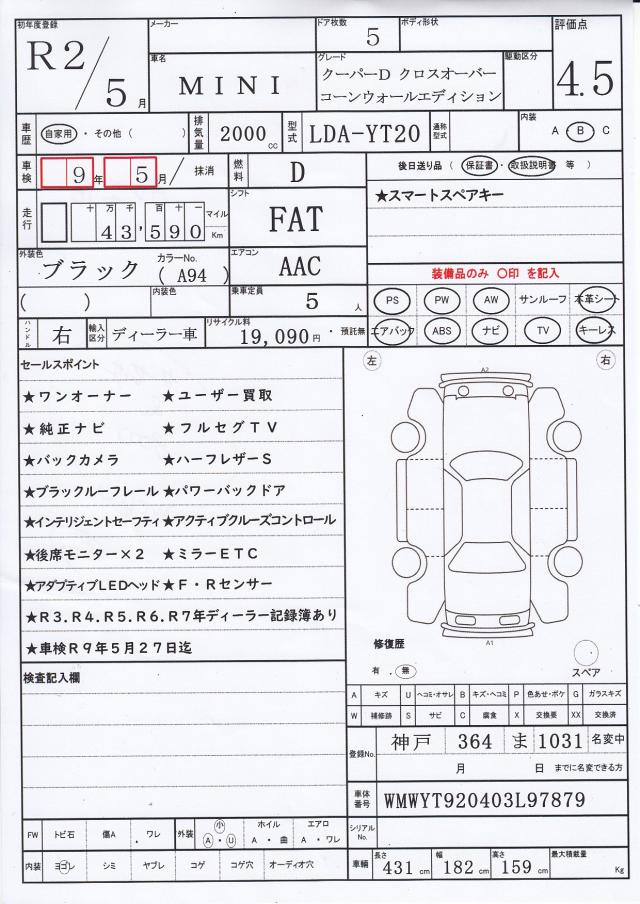 初年度登録 メーカー ドア枚数 ボディ形状 評価点
R2/5月 5
車名 グレード 駆動区分
MINI クーパーD クロスオーバー 4.5
コーンウォールエディション
車歴 自家用・その他( ) 排気量 2000cc 型式 LDA-YT20 通称型式 内装 A・B・C
車検 9年 5月/ 抹消 燃料 D 後日送り品( 保証書・取扱説明書 等 )
走行 十万千百十一 43,590 マイル Km シフト FAT ★スマートスペアキー
外装色 ブラック カラーNo. ( A94 ) エアコン AAC 装備品のみ 〇印 を記入
( ) 内装色 乗車定員 5人 PS PW AW サンルーフ 本革シート
ハンドル 右 輸入区分 ディーラー車 リサイクル料 19,090円・預託無 エアバック ABS ナビ TV キーレス
セールスポイント 左 右
★ワンオーナー ★ユーザー買取 A2
★純正ナビ ★フルセグTV
★バックカメラ ★ハーフレザーS
★ブラックルーフレール★パワーバックドア
★インテリジェントセーフティ★アクティブクルーズコントロール
★後席モニター×2 ★ミラーETC
★アダプティブLEDヘッド★F・Rセンサー
★R3.R4.R5.R6.R7年ディーラー記録簿あり
★車検R9年5月27日迄
A1
修復歴
有.無 スペア
検査記入欄
A キズ U ヘコミ・オサレ B キズ・ヘコミ P 色あせ・ボケ G ガラスキズ
W 補修跡 S サビ C 腐食 X 交換要 XX 交換済
登録No. 神戸 364 ま 1031 名変中
月 日 までに名変できる方
車体番号 WMWYT920403L97879
FW トビ石 傷A . ワレ 外装 小 A・U ホイル A・曲 エアロ A・ワレ シリアルNo.
内装 ヨゴレ シミ ヤブレ コゲ コゲ穴 オーディオ穴 車輛 長さ 431cm 幅 182cm 高さ 159cm 最大積載量 Kg